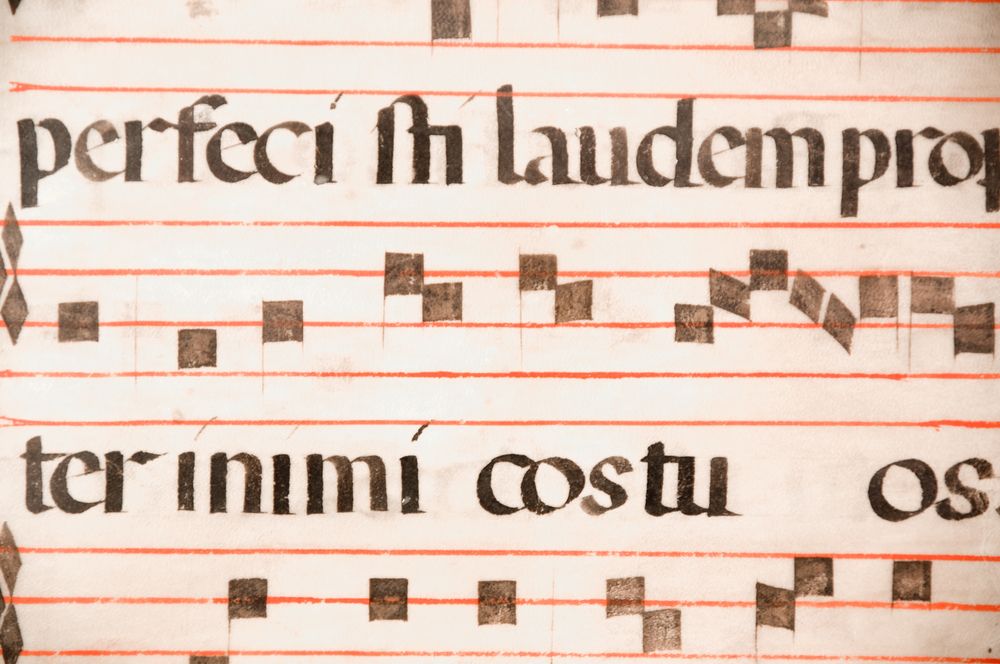 perfeci sti laudem prop
ter inimi cos tu os